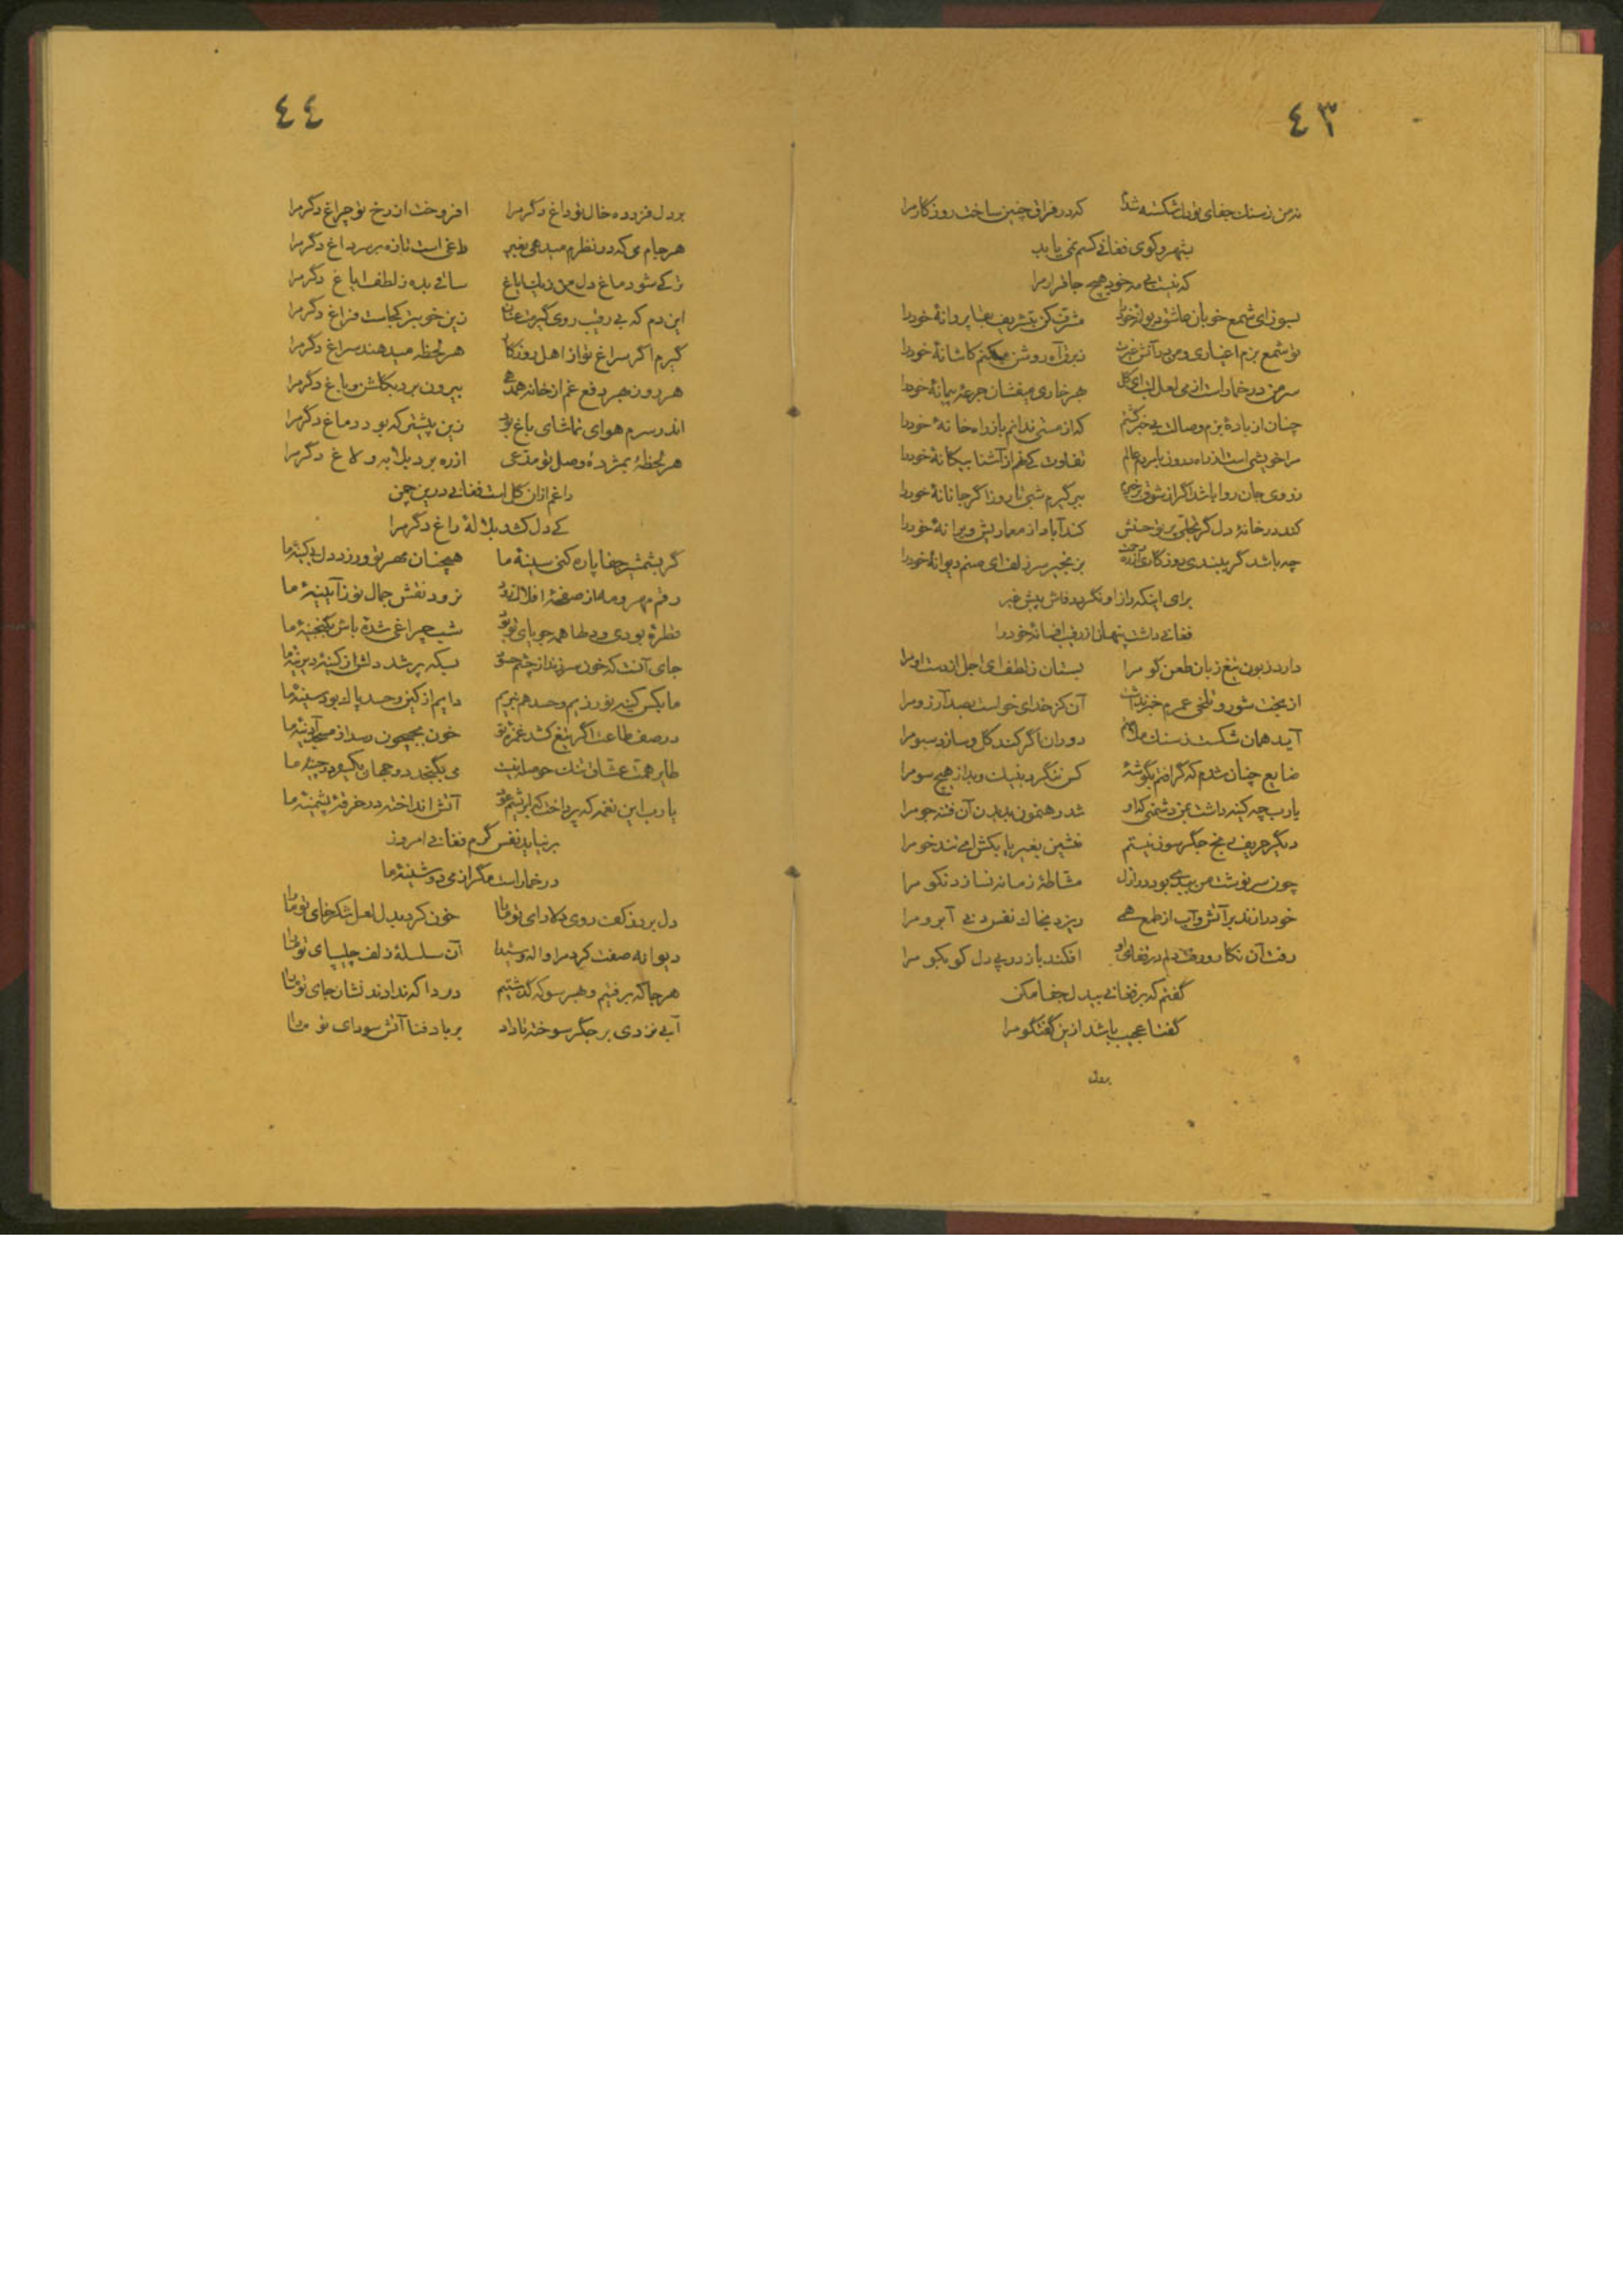 ٤٣
نه من ز سنك جفای تو دل شکسته شدم که در فراق چنین ساخت روزکار مرا
بشهر و کوی فغانی کسم نمی یابد
که نیست بی مه خود هیچ جا قرار مرا
بسوز ای شمع خوبان عاشق دیوانهٔ خود را مشرف کن بتشریف بقا پروانهٔ خود را
تو شمع بزم اغیاری و من در آتش غیرت ز برق آه روشن میکنم کاشانهٔ خود را
سر من در خمار است از می لعل لبت ای کل بهر خاری میفشان جرعهٔ پیمانهٔ خود را
چنان از بادهٔ بزم وصالت بی خبر کشتم که از مستی ندانم باز راه خانهٔ خود را
مرا خویشی است از راه درون با مردم عالم تفاوت کی نهم از آشنا بیکانهٔ خود را
ز روی جان روا باشد اگر از شوق رخ بیگیرم شبی تا روز اگر جانانهٔ خود را
کند در خانهٔ دل گر تجلی پرتو حسنش کند آباد از معماریش ویرانهٔ خود را
چه باشد گر ببندی روزکاری بزنجیر سر زلف ای صنم دیوانهٔ خود را
برای اینکه راز او نگردد فاش پیش غیر
فغانی داشت پنهان از رقیب افسانهٔ خود را
دارد زبون تیغ زبان طعن کو مرا بستان ز لطف ای اجل از دست او مرا
از بخت شور و تلخی عمرم خبر نداشت آن کز خدای خواست بصد آرزو مرا
آید همان شکست ز سنك دوران اگر کند کل و سازد سبو مرا
ضایع چنان شدم که گر افتم بگوشهٔ کس ننگرد بنیك و بد از هیچ سو مرا
یارب چه کینه داشت بمن دشمنی که او شد رهنمون بدیدن آن فتنه جو مرا
دیگر حریف بی مخ جگرسوز نیستم بنشین بغیر یا بکش ای تندخو مرا
چون سرنوشت من ببدی بود در ازل مشاطهٔ زمانه نسازد نکو مرا
خود را زند بر آتش و آب از طمع همی ریزد بخاك نفس دنی آبرو مرا
رفت آن نکار و رفت دلم در قفای او افکند باز در پی دل کو بکو مرا
گفتم که بر فغانی بیدل جفا مکن
گفتا عجیب باشد ازین گفتگو مرا
بر دل
٤٤
بر دل فزوده خال تو داغ دکر مرا افروخت از رخ تو چراغ دکر مرا
هر جام می که در نظرم میدهی بغیر داغی است تازه بر سر داغ دکر مرا
تر کی شود دماغ دل من زیك ایاغ ساقی بده ز لطف ایاغ دکر مرا
این دم که بی رقیب روی زین خوبتر کجاست فراغ دکر مرا
گیرم اگر سراغ تو از اهل روزکار هر لحظه میدهند سراغ دکر مرا
هر دون بهر دفع غم از خانه همدمی بیرون برد بکلشن و باغ دکر مرا
اندر سرم هوای تماشای باغ بود زین پیشتر که بود دماغ دکر مرا
هر لحظهٔ بمژدهٔ وصل تو مدعی از ره برد بلابه و لاغ دکر مرا
داغم از آن کل است فغانی درین چمن
کی دل کشد بلالهٔ داغ دکر مرا
گر بشمشیر جفا پاره کنی سینهٔ ما همچنان مهر تو ورزد دل بی کینهٔ ما
رقم مهر و مه از صفحهٔ افلاك نرود نقش جمال تو ز آیینهٔ ما
قطره بودی و دلها همه جویای تو بود شب چراغی شدهٔ باش بکنجینهٔ ما
جای آنست که خون سر زند از چشم حسود بسکه پر شد دلش از کینهٔ دیرینهٔ ما
ما بکس کینه نورزیم و حسد هم نبریم دایم از کین و حسد پاك بود سینهٔ ما
در صف طاعت اگر تیغ کشد غمزهٔ تو خون بجیحون رسد از مسجد آدینهٔ ما
طایر همت عشاق تنك حوصله نیست می بگنجد دو جهان یکسره در چینهٔ ما
یارب این نغمه که پرداخت که ابریشم عود آتش انداخته در خرقهٔ پشمینهٔ ما
برنیاید نفس گرم فغانی امروز
در خمار است مگر از می دوشینهٔ ما
دل برد ز کف روی دلارای تو ما را خون کرد بدل لعل شکرخای تو ما را
دیوانه صفت کرد مرا واله و شیدا آن سلسلهٔ زلف چلیپای تو ما را
هر جا که برفتیم و بهر سو که گذشتیم دردا که ندادند نشان جای تو ما را
آبی نزدی بر جگر سوخته تا داد بر باد فنا آتش سودای تو ما را